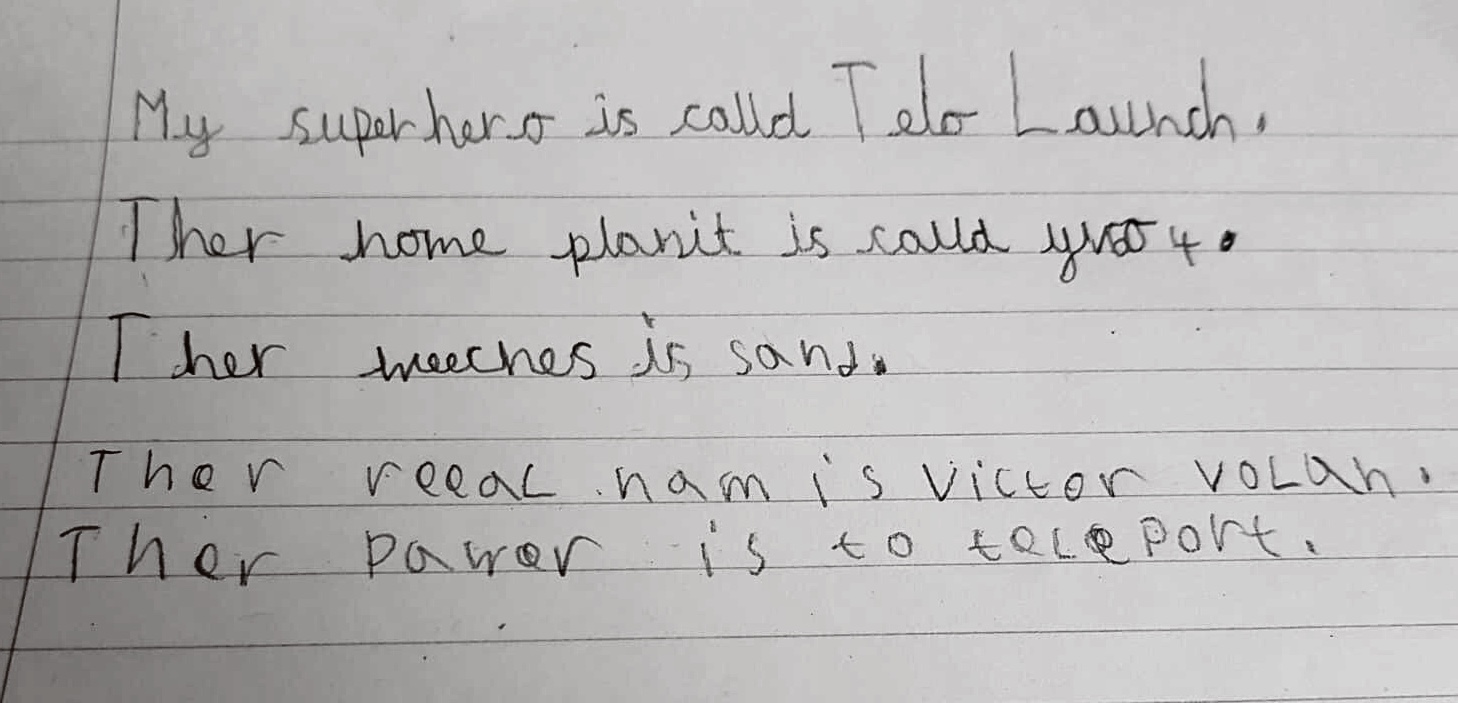 My superhero is calld Telo Launch.
Ther home planit is calld 4.
Ther weeches is sand.
Ther reeal nam is victor volan.
Ther pawer is to teleport.